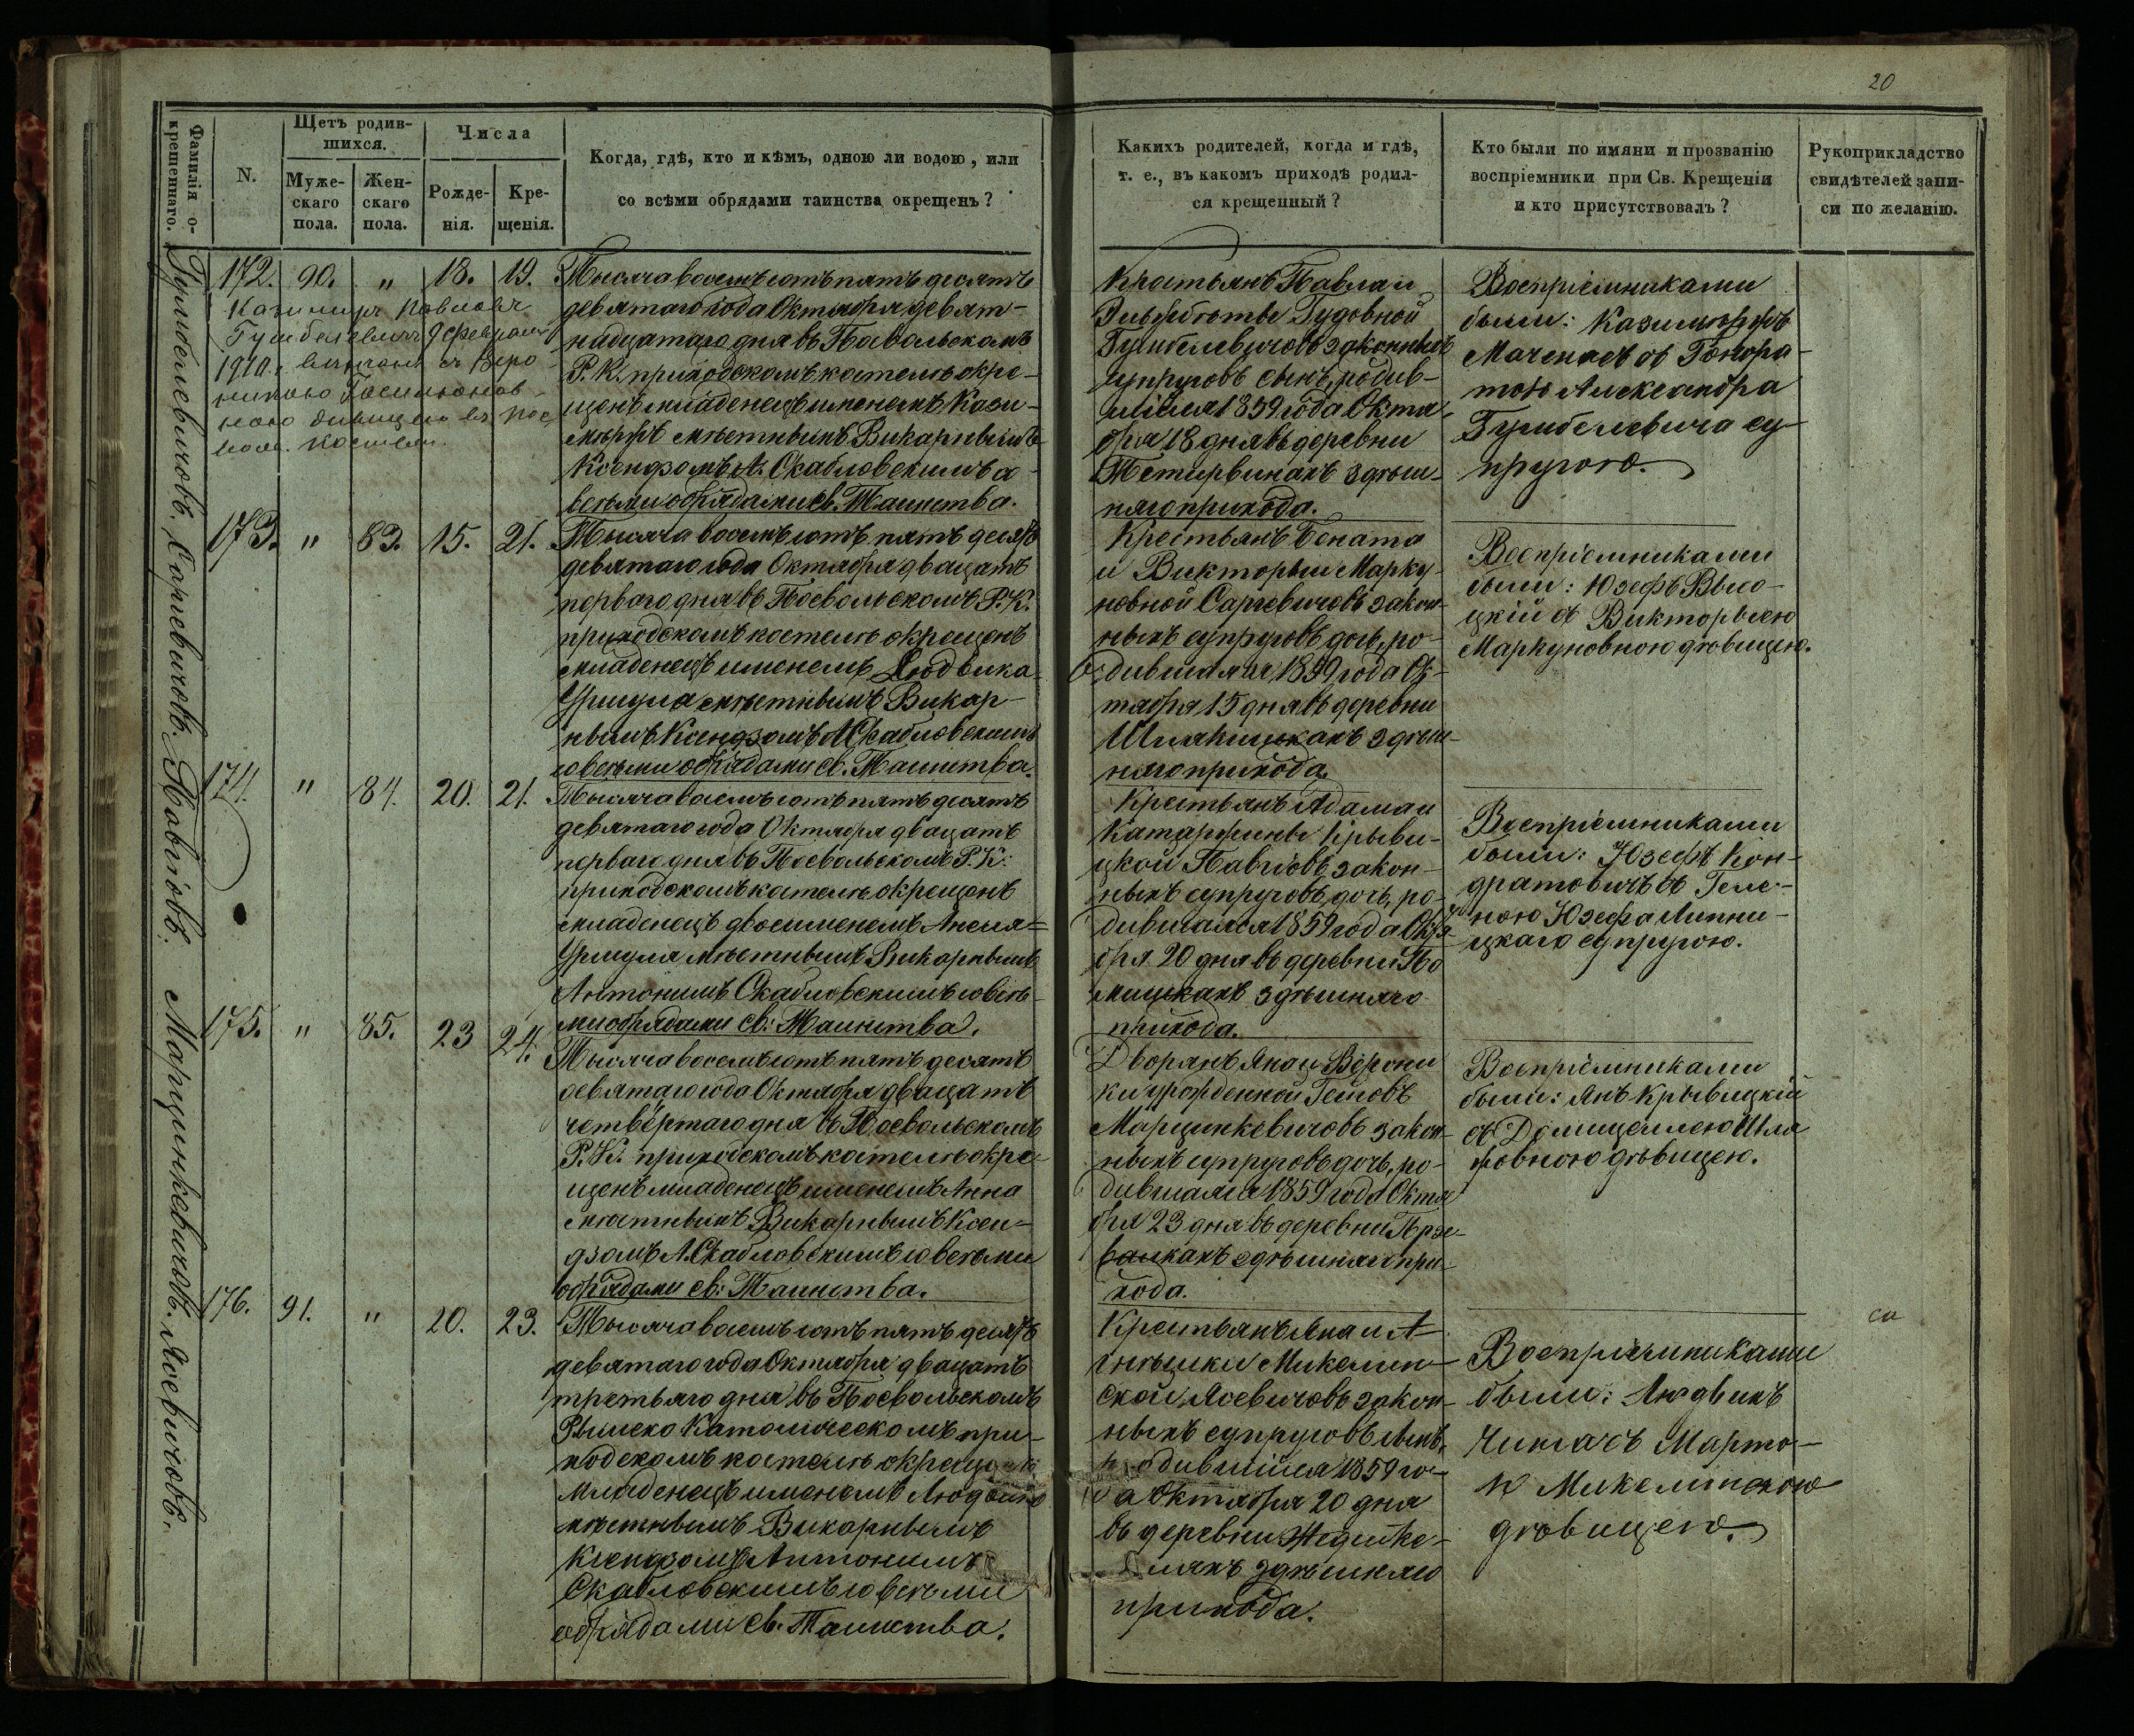 20
Фамилія о-
крещеннаго.
N.
Щетъ родив-
шихся.
Муже-
скаго
пола.
Жен-
скаго
пола.
Числа
Рожде-
нія.
Кре-
щенія.
Когда, гдѣ, кто и кѣмъ, одною ли водою, или
со всѣми обрядами таинства окрещенъ?
Какихъ родителей, когда и гдѣ,
т. е., въ какомъ приходѣ родил-
ся крещенный?
Кто были по имяни и прозванію
воспріемники при Св. Крещеніи
и кто присутствовалъ?
Рукоприкладство
свидѣтелей запи-
си по желанію.
Гумбелевичовъ.
172. 90. " 18. 19.
Казимиръ Павловъ
Гумбелевичъ 9 февраля
1910 г. вѣнчанъ съ Веро
никою
ною дѣвицею въ
костелѣ.
Тысяча восемъ сотъ пятъ десятъ
девятаго года Октября девят-
надцатаго дня въ Посвольскомъ
Р. К. приходскомъ костелѣ окре-
щенъ младенецъ именемъ Кази-
мѣръ мѣстнымъ Викарнымъ
Ксендзомъ А. Скабловскимъ со
всѣми обрядами св. Таинства.
Крестьянъ Павла и
Эльжбеты Гудовной
Гумбелевичовъ законныхъ
супруговъ сынъ, родив-
шійся 1859 года Октя-
бря 18 дня въ деревни
Тетирвинахъ здѣш-
няго прихода.
Воспріемниками
были: Казимѣръ
Маченасъ съ Гонора-
тою Александра
Гумбелевича су-
пругою.
Саргевичовъ.
173. " 83. 15. 21.
Тысяча восемъ сотъ пятъ десятъ
девятаго года Октября двацатъ
перваго дня въ Посвольскомъ Р. К.
приходскомъ костелѣ окрещенъ
младенецъ именемъ Людвика-
Уршуля мѣстнымъ Викар-
нымъ Ксендзомъ А Скабловскимъ
со всѣми обрядами св. Таинства.
Крестьянъ Доната
и Викторыи Марку-
новной Саргевичовъ закон-
ныхъ супруговъ дочь, ро-
дившаяся 1859 года Ок-
тября 15 дня въ деревни
здѣш-
няго прихода.
Воспріемниками
были: Юзефъ Высо-
цкій съ Викторыею
Маркуновною дѣвицею.
Павіловъ.
174. " 84. 20. 21.
Тысяча восемъ сотъ пятъ десятъ
девятаго года Октября двацатъ
перваго дня въ Посвольскомъ Р. К.
приходскомъ костелѣ окрещенъ
младенецъ двоеименемъ Анеля=
Уршуля мѣстнымъ Викарнымъ
Антонимъ Скабловскимъ со всѣ-
ми обрядами св: Таинства.
Крестьянъ Адама и
Катаржины Крыви-
цкой Павіловъ закон-
ныхъ супруговъ дочь, ро-
дившаяся 1859 года Октя-
бря 20 дня въ деревни По
мицкахъ здѣшняго
прихода.
Воспріемниками
были: Юзефъ Кон-
дратовичъ съ Геле-
ною Юзефа Липни-
цкаго супругою.
Марцинкевичовъ.
175. " 85. 23 24.
Тысяча восемъ сотъ пятъ десятъ
девятаго года Октября двацатъ
четвёртаго дня въ Посвольскомъ
Р. К. приходскомъ костелѣ окре-
щенъ младенецъ именемъ Анна
мѣстнымъ Викарнымъ Ксен-
дзомъ А. Скабловскимъ со всѣми
обрядами св: Таинства.
Дворянъ Яна и Верони
ки урожденной
Марцинкевичовъ закон-
ныхъ супруговъ дочь, ро-
дившаяся 1859 года Октя
бря 23 дня въ деревни
здѣшняго при-
хода.
Воспріемниками
были: Янъ Крывицкій
съ Домицеллею Шля
повною дѣвицею.
Ясевичовъ.
176. 91. " 20. 23.
Тысяча восемъ сотъ пятъ десятъ
девятаго года Октября двацатъ
третьяго дня въ Посвольскомъ
Рымско Католическомъ при-
ходскомъ костелѣ окрещенъ
младенецъ именемъ Людвикъ
мѣстнымъ Викарнымъ
Ксендзомъ Антонимъ
Скабловскимъ со всѣми
обрядами св. Таинства.
Крестьянъ Яна и А-
гнѣшки Микелин-
ской Ясевичовъ закон-
ныхъ супруговъ сынъ,
родившійся 1859 го-
да Октября 20 дня
въ деревни
здѣшняго
прихода.
Воспріемниками
были: Людвикъ
съ Марто-
ю Микелинскою
дѣвицею.